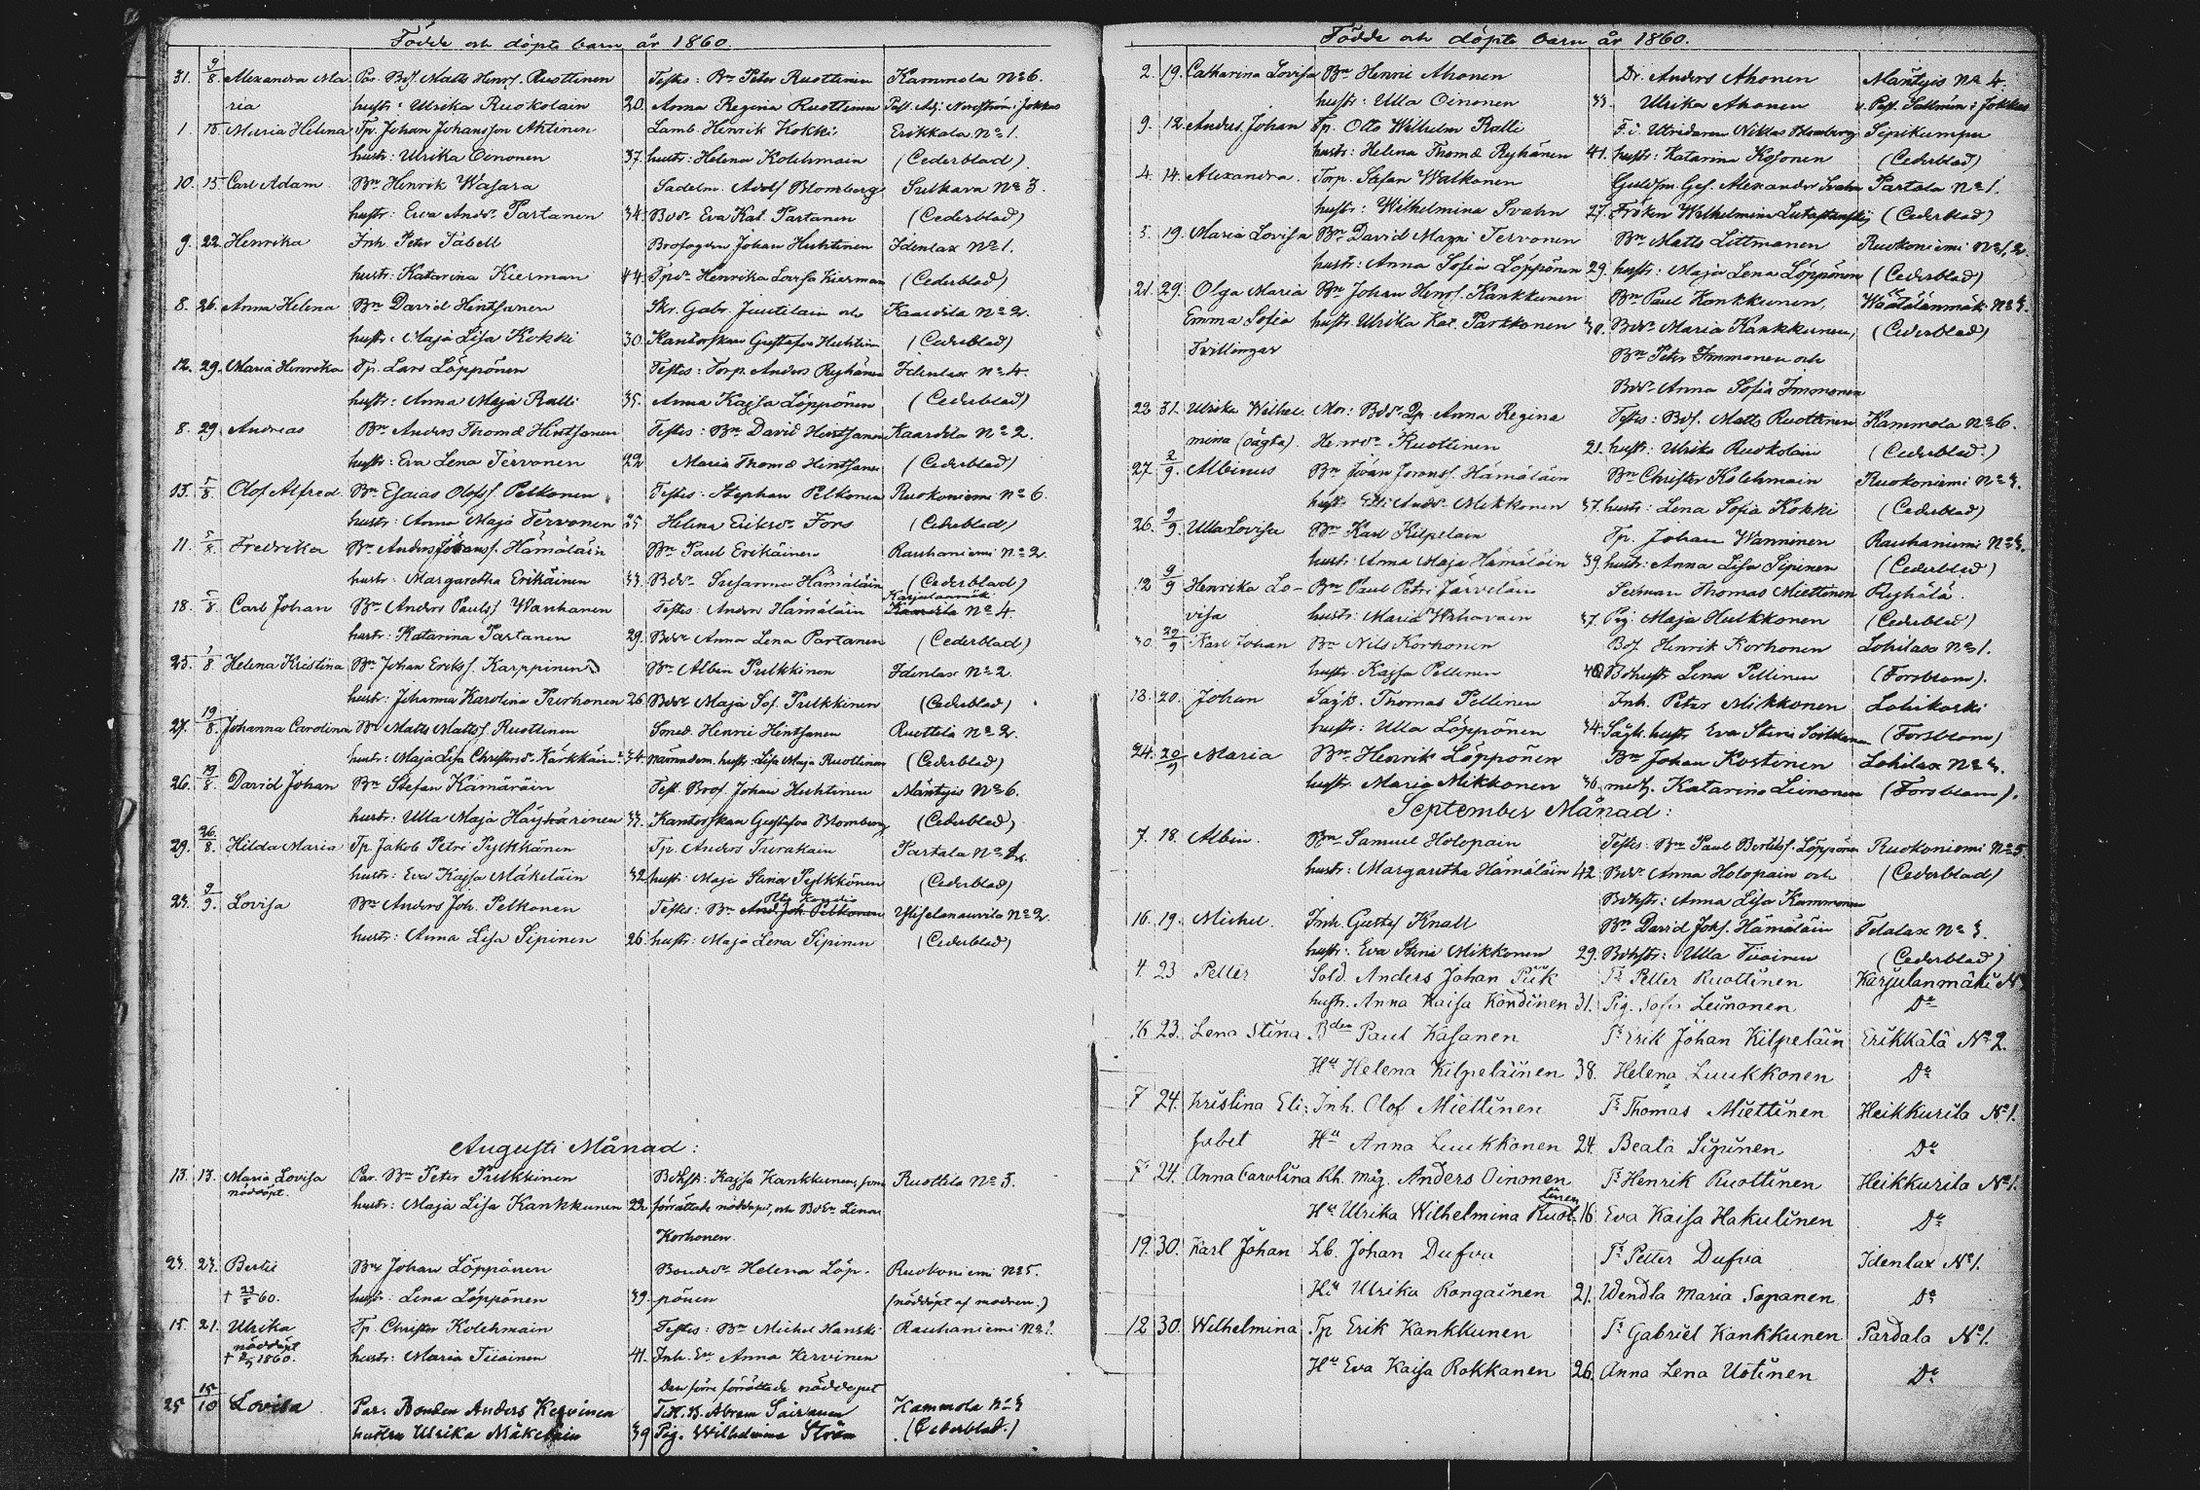 Födde och döpte barn år 1860.
31. 9/8 Alexandra Ma Par. Bdſ. Matts Henrſ. Ruottinen Testes: Bn Peter Ruottinen Kammola No 6.
ria hustr: Ulrika Ruokolain 20. Anna Regina Ruottinen Past. Adj. Nordström i Jokkas
1. 15 Maria Helena Tp. Johan Johansſon Ahtinen Lamb. Henrik Kokki Erikkala No 1.
hustr: Ulrika Oinonen 37. hustr: Helena Kolehmain (Cederblad)
10. 15 Carl Adam Bn Henrik Waſara Sadelm. Adolf Blomberg Sulkava No 3.
hustr: Eva Andr. Partanen 34. Bdr Eva Kat. Partanen (Cederblad)
9. 22 Henrika Inh. Peter Tabell Brofogden Johan Huhtinen Idenlax No 1.
hustr: Katarina Kierman 44. Henrika Loviſa Kierman (Cederblad)
8. 26. Anna Helena Bn David Hintſanen Skr. Gabr. Juutilain och Kaartila No 2.
hustr: Maja Liſa Kokki 30. Kantorſkan Guſtafva Huhtinen (Cederblad)
12. 29. Maria Henrika Tp. Lars Löppönen Testes: Torp. Anders Ryhänen Idenlax No 4.
hustr: Anna Maja Ralli 35. Anna Kajſa Löppönen (Cederblad)
8. 29 Andreas Bn Anders Thomæ Hintſanen Testes: Bn David Hintſanen Kaartila No 2.
hustr: Eva Lena Tervonen 22 Maria Thomæ Hintſanen (Cederblad)
13. 5/8 Olof Alfred Bn Eſaias Olofsſ. Pelkonen Testes: Stephan Pelkonen Ruokoniemi No 6.
hustr: Anna Maja Tervonen 25 Helena Eriksdr Fors (Cederblad)
11. 5/8 Fredrika Bn Anders Johansſ. Hämäläin Bn Paul Erikäinen Rauhaniemi No 2
hustr: Margaretha Erikäinen 33. Bdr Suſanna Hämäläin (Cederblad)
18. 5/8 Carl Johan Bn Anders Paulsſ. Wauhanen Testes: Anders Hämäläin Karjulanmäki No 4.
hustr: Katarina Partanen 29. Bdr Anna Lena Partanen (Cederblad)
25. /8 Helena Kristina Bn Johan Eriksſ. Karppinen Bn Albin Pulkkinen Idenlax No 2
hustr: Johanna Karolina Turhonen 26 Bdr Maja Sof. Pulkkinen (Cederblad)
27. 19/8. Johanna Carolina Bn Matts Mattsſ. Ruottinen Smed. Henric Hintſanen Ruottila No 2.
hustr: Maja Liſa Christersdr Kärkkäin 34. nämndem. hustr Liſa Maja Ruottinen (Cederblad)
26. 19/8. David Johan Bn Stefan Kämäräin Test. Brof. Johan Huhtinen Mäntyis No 6.
hustr: Ulla Maja Häyhärinen 37. Kantorſkan Guſtafva Blomberg (Cederblad)
29. 26/8. Hilda Maria Tp. Jakob Petri Pylkkänen Tp. Anders Turakain Partala No
hustr: Eva Kajſa Mäkeläin 32. hustr: Maja Stina Pylkkönen (Cederblad)
23. 9/9. Loviſa Bn Anders Joh. Pelkonen Testes: Bn And. Joh. Pelkonen No 2.
hustr: Anna Liſa Sipinen 26 hustr: Maja Lena Sipinen (Cederblad)
Auguſti Månad:
13. 13. Maria Loviſa Par. Bn Peter Pulkkinen Bdhſtr: Kajſa Kankkunen, ſom Ruottila No 3.
nöddöpt. hustr: Maja Liſa Kankkunen 22. förrättade nöddopet, och Bdr Lena
Korhonen.
23. 23. Bertil Bn Johan Löppönen Bondedr Helena Löp- Ruokoniemi No 5.
† 23/8 60. hustr: Lena Löppönen 39. pönen (nöddöpt af modren.)
15. 21. Ulrika Tp. Christer Kolehmain Testes: Bn Michel Hanski Rauhaniemi No 1.
nöddöpt
† 1860. hustr: Maria Tiiainen 41. Inh. Anna Kervinen
Den förre förrättade nöddopet
25 15/10 Loviſa Par. Bonden Anders Kervinen T.H. B. Abram Sairanen Kammola No 3
hustru Ulrika Mäkeläin 39 Pig. Wilhelmina Ström (Cederblad.)
Födde och döpte barn år 1860.
2. 19. Catharina Loviſa Bn Henric Ahonen Dr. Anders Ahonen Mäntyis No 4.
hustr: Ulla Oinonen 33. Ulrika Ahonen v. Past. Sallmén i Jokkas
9. 12. Anders Johan Tp. Otto Wilhelm Ralli F.d. Utridaren Niklas Blomberg Sipikumpu
hustr: Helena Thomæ Ryhänen 41. hustr: Katarina Koſonen (Cederblad)
4. 14. Alexandra. Torp. Stefan Walkonen Guldſm. Geſ. Alexander Svahn Partala No 1.
hustr: Wilhelmina Svahn 27. Fröken Wilhelmina (Cederblad)
5. 19. Maria Loviſa Bn David Tervonen Bn Matts Littmanen Ruokoniemi No 1,2.
hustr: Anna Sofia Löppönen 29. hustr: Maja Lena Löppönen (Cederblad)
21. 29. Olga Maria Bn Johan Henrſ. Kankkunen Bn Paul Kankkunen, Wäätälänmäki No 3.
Emma Sofia hustr Ulrika Kat. Parkkonen 30. Bdr Maria Kankkunen, (Cederblad)
Tvillingar Bn Peter Immonen och
Bdr Anna Sofia Immonen
23 31. Ulrika Wilhel- Mor: Bdr Anna Regina Testes: Bdſ. Matts Ruottinen Kammola No 6.
mina (oägta). Henrdr Ruottinen 21. hustr: Ulrika Ruokolain (Cederblad)
27. 2/9. Albinus Bn Johan Hämäläin Bn Christer Kolehmain Ruokoniemi No 3.
hustr: Andr. Mikkonen 37. hustr: Lena Sofia Kokki (Cederblad)
26. 9/9. Ulla Loviſa Bn Karl Kilpeläin Tp. Johan Wänninen Rauhaniemi No 3.
hustr: Anna Maja Hämäläin 39 hustr: Anna Liſa Sipinen (Cederblad)
12. 9/9 Henrika Lo- Bn Paul Petri Järveläin Lieman Thomas Miettinen Ryhälä.
viſa hustr: Maria 37. Pig. Maja Hulkkonen (Cederblad)
30. 29/9 Karl Johan Bn Nils Korhonen Bdſ. Henrik Korhonen Lohilax No 1.
hustr. Kajſa Pellinen 40. Bdhustr Lena Pellinen (Forsblom).
13. 20. Johan Sågk. Thomas Pellinen Inh. Peter Mikkonen Lohikoski
hustr: Ulla Löppönen 34. Sågk. hustr. Eva Stina (Forsblom)
24. 20/9 Maria Bn Henrik Löppönen Bn Johan Kostinen Lohilax No 3.
hustr. Maria Mikkonen 36. Katarina Leinonen (Forsblom).
September Månad:
7. 18. Albin. Bn Samuel Holopain Testes: Bn Paul Bertilsſ. Löppönen Ruokoniemi No 5
hustr: Margaretha Hämäläin 42 Bdr Anna Holopain och (Cederblad)
Bdhſtr: Anna Liſa Kammonen
16. 19. Michel. Inh. Gustaf Knall Bn David Johſ. Hämäläin Telalax No 3.
hustr: Eva Stina Mikkonen 29. Bdhſtr: Ulla Tiiainen (Cederblad)
4. 23 Petter Sold. Anders Johan Piik Ts Petter Ruottinen Karjulanmäki No
hustr. Anna Kaiſa Kondinen 31. Pig. Sofia Leinonen Do
16 23. Lena Stina Bden Paul Käſänen Ts Erik Johan Kilpeläin Erikkälä No 2.
Hu Helena Kilpeläinen 38. Helena Luukkonen Do
7 24. Kristina Eli- Inh. Olof Miettinen Ts Thomas Miettinen Heikkurila No 1.
ſabet Hu Anna Luukkonen 24. Beata Sipinen Do
7 24. Anna Carolina Rh. Måg. Anders Oinonen Ts Henrik Ruottinen Heikkurila No 1.
Hu Ulrika Wilhelmina Ruottinen 16 Eva Kaiſa Hakulinen Do
19. 30. Karl Johan Lb. Johan Dufva Ts Petter Dufva Idenlax No 1.
Hu Ulrika Rongainen 21. Wendla Maria Sopanen Do
12 30. Wilhelmina Tp Erik Kankkunen Ts Gabriel Kankkunen Pardala No 1.
Hu Eva Kaiſa Rokkanen 26. Anna Lena Ustinen Do